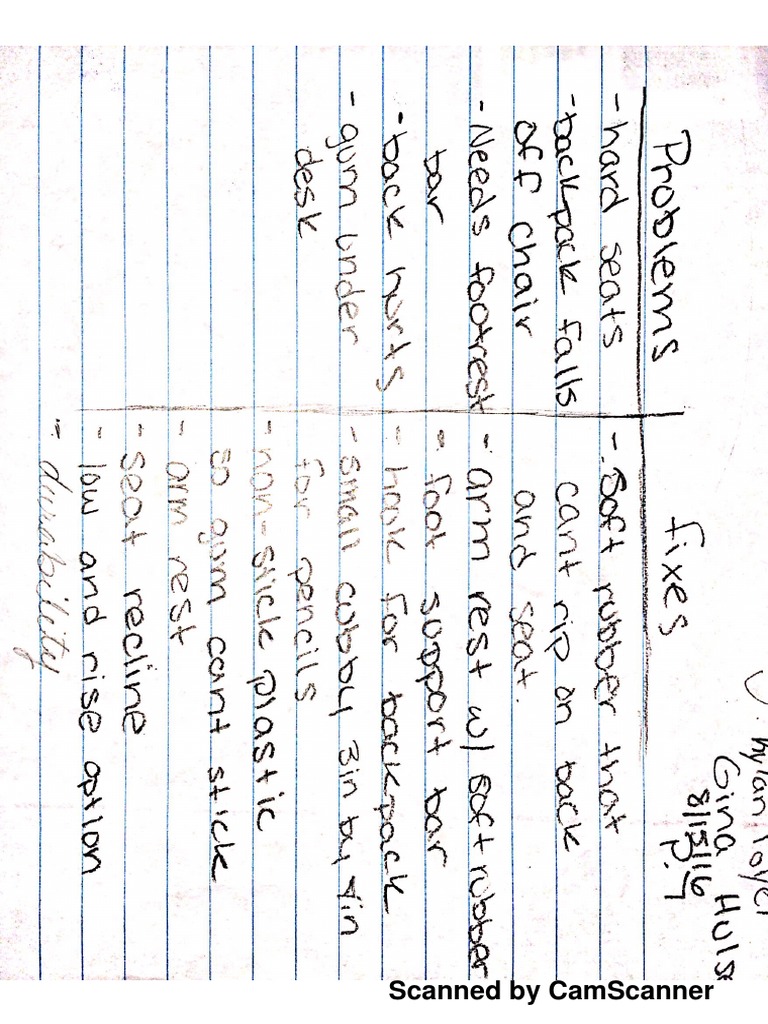 Gina Huls
8/15/16
P.7
Problems
- hard seats
- backpack falls
off chair
- Needs footrest
bar
- back hurts
- gum under
desk
fixes
- Soft rubber that
cant rip on back
and seat.
- arm rest w/ soft rubber
- foot support bar
- hook for backpack
- small cubby 3in by 4in
for pencils
- non-stick plastic
so gum cant stick
- arm rest
- seat recline
- low and rise option
- durability
Scanned by CamScanner